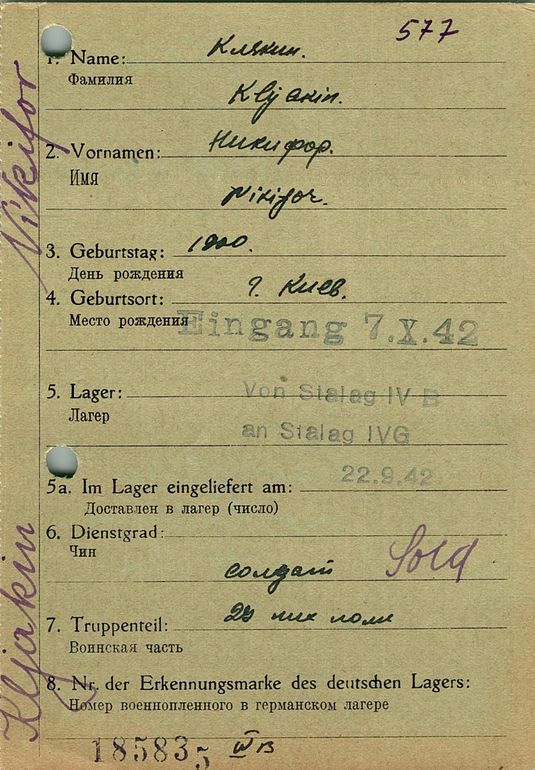 577
1. Name: Клякин.
Фамилия
Kljakin.
2. Vornamen: Никифор.
Имя
Nikifor.
3. Geburtstag: 1900.
День рождения
4. Geburtsort: г. Киев.
Место рождения
Eingang 7.X.42
5. Lager:
Лагер
Von Stalag IV B
an Stalag IVG
22.9.42
5a. Im Lager eingeliefert am:
Доставлен в лагер (число)
6. Dienstgrad:
Чин
солдат Sold
7. Truppenteil: пих полк
Воинская часть
8. Nr. der Erkennungsmarke des deutschen Lagers:
Номер военнопленного в германском лагере
185835 IV B
Kljakin Nikifor